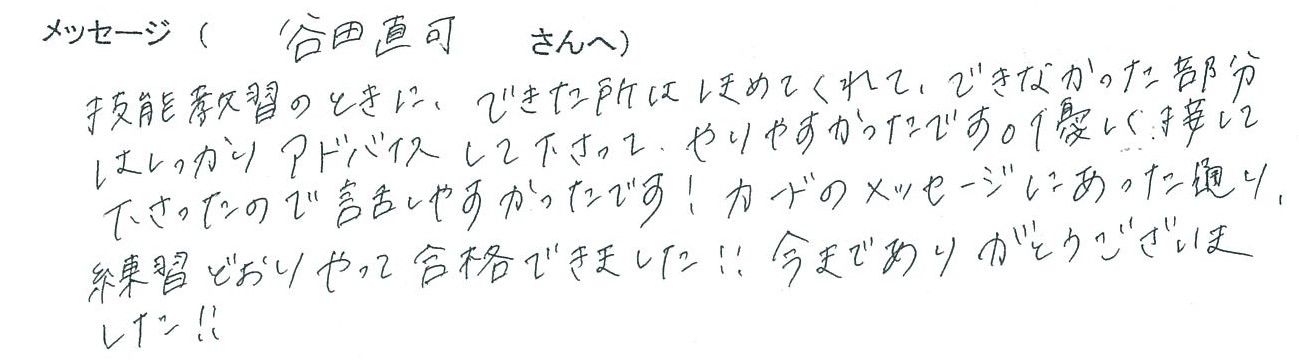 メッセージ ( 谷田直可 さんへ)
技能教習のときに、できた所はほめてくれて、できなかった部分
はしっかりアドバイスして下さって、やりやすかったです。優しく接して
下さったので話しやすかったです!カードのメッセージにあった通り、
練習どおりやって合格できました!!今までありがとうございま
した!!